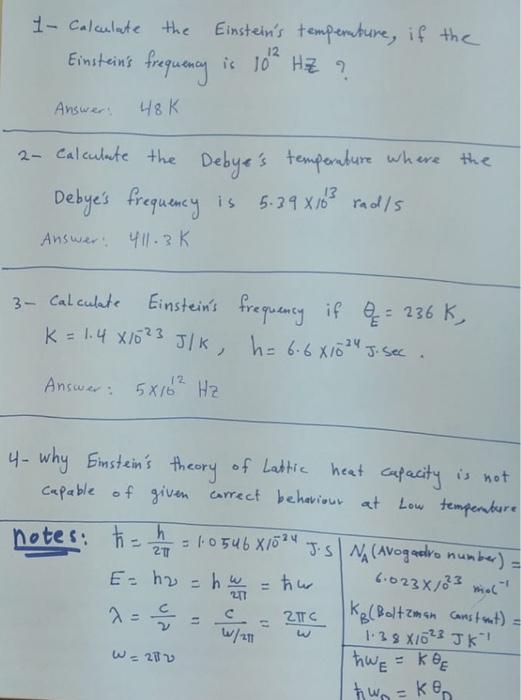 1- Calculate the Einstein's temperature, if the
Einstein's frequency is 10¹² HZ ?
Answer: 48 K
2- Calculate the Debye's temperature where the
Debye's frequency is 5.39 X10¹³ rad/s
Answer: 411.3 K
3- Calculate Einstein's frequency if θ_E = 236 K,
K = 1.4 X10⁻²³ J/K, h= 6.6 X10⁻³⁴ J.sec.
Answer: 5X10¹² Hz
4- Why Einstein's theory of Lattic heat capacity is not
capable of given correct behaviour at Low temperature
notes: ħ = h/2π = 1.0546 X10⁻³⁴ J.S
E = hν = h ω/2π = ħω
λ = c/ν = c/ω/2π = 2πc/ω
ω = 2πν
N_A (Avogadro number) =
6.023X10²³ mol⁻¹
K_B (Boltzman constant) =
1.38 X10⁻²³ JK⁻¹
ħω_E = Kθ_E
ħω_D = Kθ_D